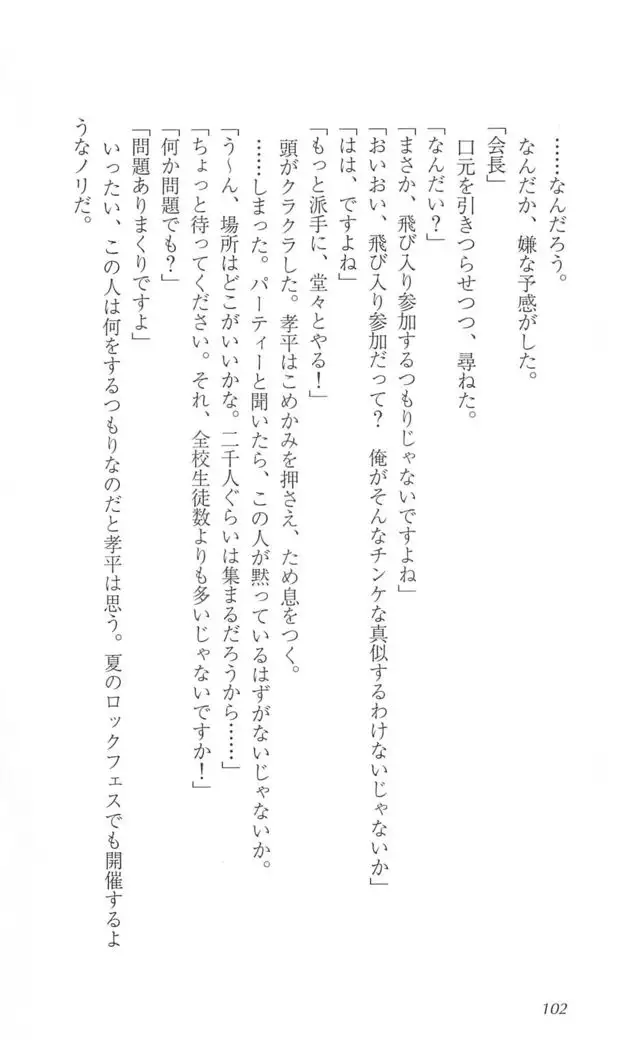 ……なんだろう。
なんだか、嫌な予感がした。
「会長」
口元を引きつらせつつ、尋ねた。
「なんだい？」
「まさか、飛び入り参加するつもりじゃないですよね」
「おいおい、飛び入り参加だって？　俺がそんなチンケな真似するわけないじゃないか」
「はは、ですよね」
「もっと派手に、堂々とやる！」
頭がクラクラした。孝平はこめかみを押さえ、ため息をつく。
……しまった。パーティーと聞いたら、この人が黙っているはずがないじゃないか。
「う～ん、場所はどこがいいかな。二千人ぐらいは集まるだろうから……」
「ちょっと待ってください。それ、全校生徒数よりも多いじゃないですか！」
「何か問題でも？」
「問題ありまくりですよ」
いったい、この人は何をするつもりなのだと孝平は思う。夏のロックフェスでも開催するよ
うなノリだ。
102